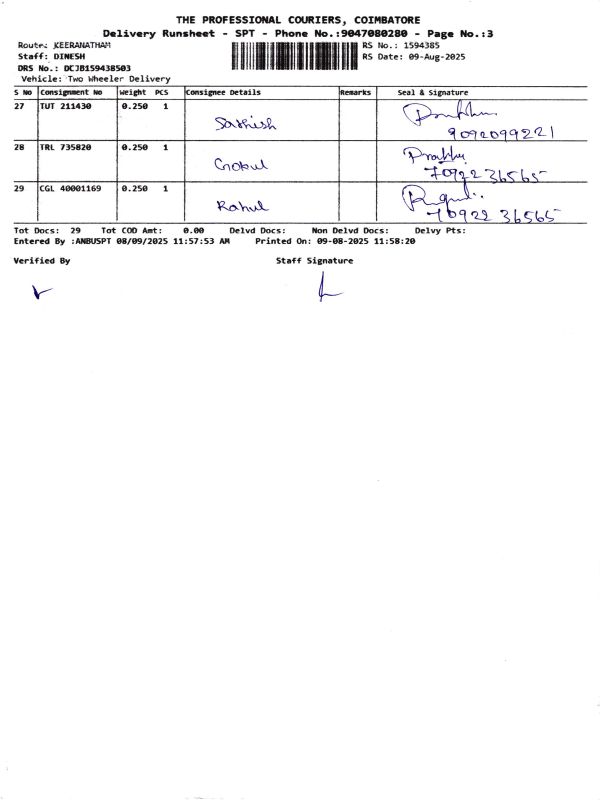 THE PROFESSIONAL COURIERS, COIMBATORE
Delivery Runsheet - SPT - Phone No.:9047080280 - Page No.:3
Route: KEERANATHAM RS No.: 1594385
Staff: DINESH RS Date: 09-Aug-2025
DRS No.: DCJB159438503
Vehicle: Two Wheeler Delivery
S No Consignment No Weight PCS Consignee Details Remarks Seal & Signature
27 TUT 211430 0.250 1
Sathish
9092099221
28 TRL 735820 0.250 1 Prabhu
Gokul 70922 36565
29 CGL 40001169 0.250 1
Rahul 70922 36565
Tot Docs: 29 Tot COD Amt: 0.00 Delvd Docs: Non Delvd Docs: Delvy Pts:
Entered By :ANBUSPT 08/09/2025 11:57:53 AM Printed On: 09-08-2025 11:58:20
Verified By Staff Signature